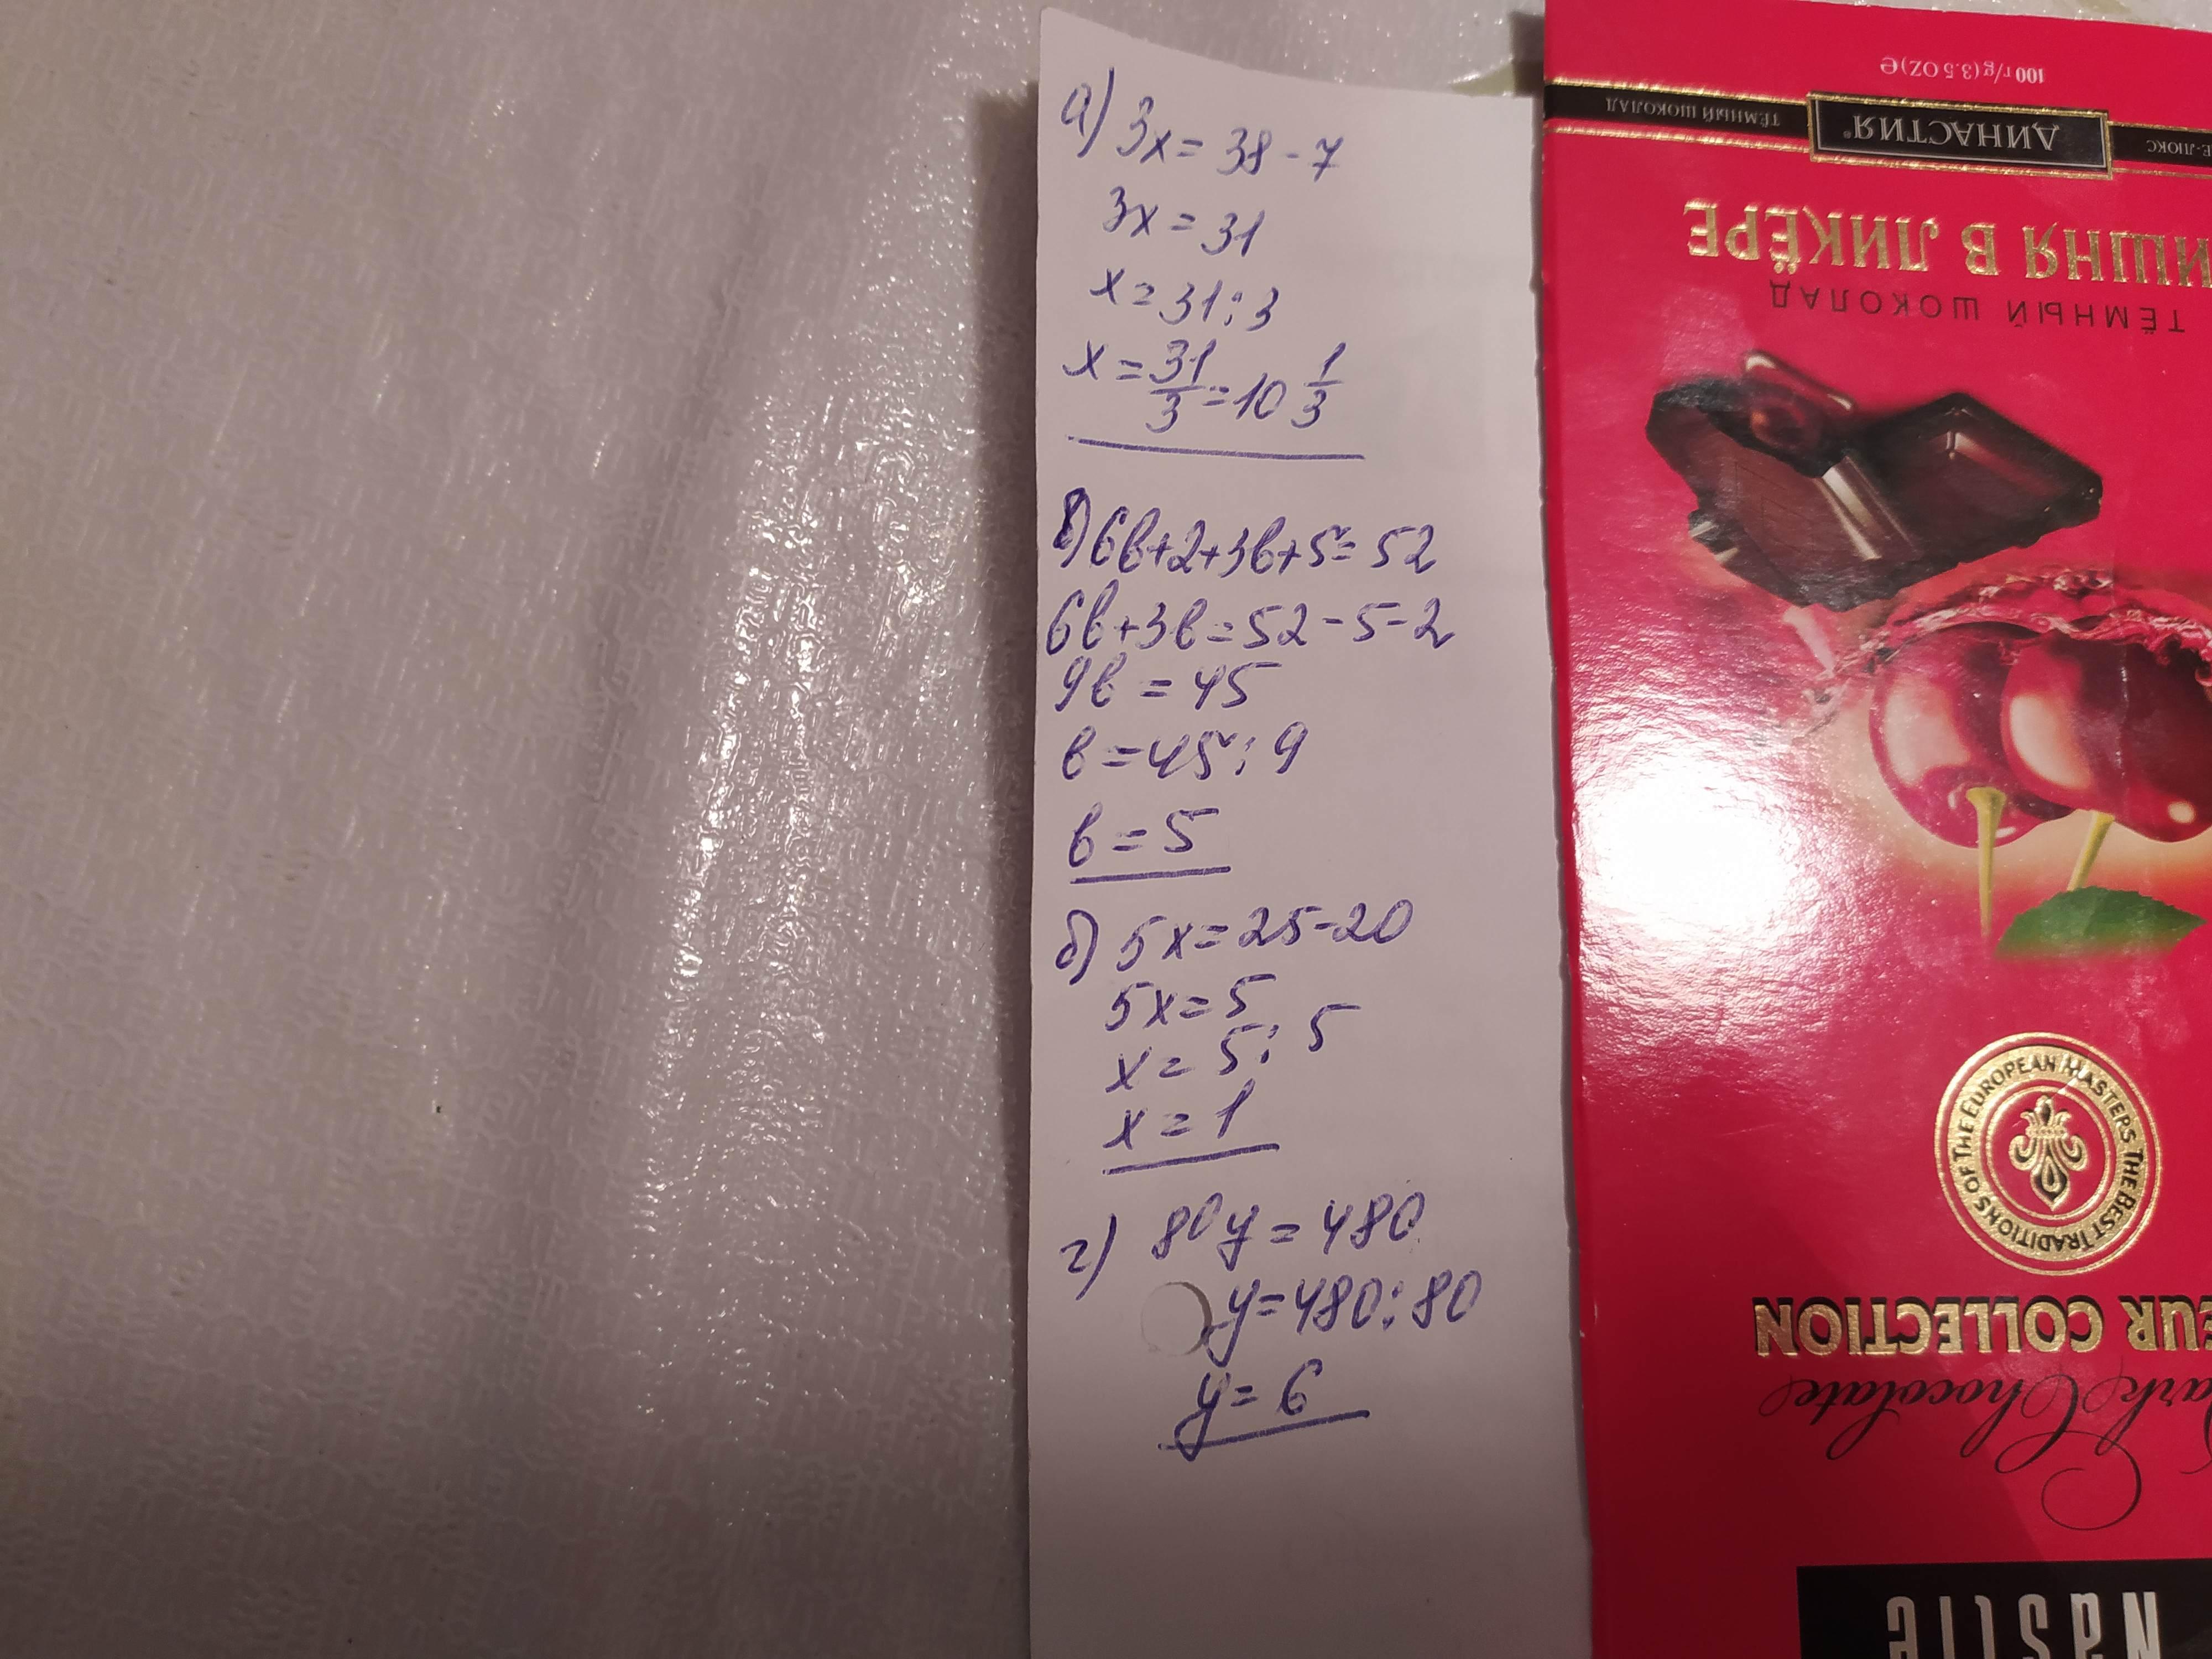 а) 3x = 38 - 7
3x = 31
x = 31 : 3
x = 31/3 = 10 1/3
в) 6в+2+3в+5 = 52
6в+3в = 52-5-2
9в = 45
в = 45 : 9
в = 5
б) 5x = 25-20
5x = 5
x = 5 : 5
x = 1
г) 80y = 480
y = 480 : 80
y = 6
100 г/g (3.5 OZ) ℮
ТЁМНЫЙ ШОКОЛАД
ДИНАСТИЯ®
Е-ЛЮКС
ИШНЯ В ЛИКЁРЕ
ТЁМНЫЙ ШОКОЛАД
OF THE EUROPEAN MASTERS THE BEST TRADITIONS
EUR COLLECTION
ark Chocolate